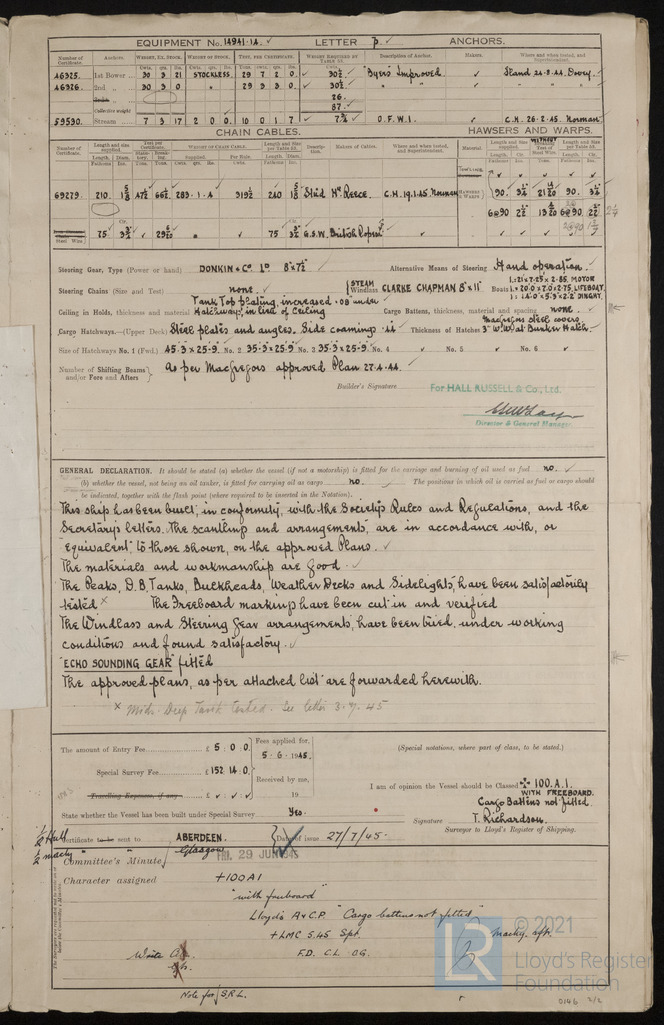 EQUIPMENT No. 14941.14. ✓ LETTER p. ✓ ANCHORS.
Number of Certificate. Anchors. WEIGHT, EX. STOCK. WEIGHT OF STOCK. TEST, PER CERTIFICATE. WEIGHT REQUIRED BY TABLE 53. Description of Anchor. Makers. Where and when tested, and Superintendent.
46325. 1st Bower 30 3 21 STOCKLESS. 29 7 2 0. 30½ ✓ "Byers" Improved ✓ S'land 24.8.44. Dovey.
46326. 2nd " 30 3 0 " 29 3 3 0. 30½ ✓ " " ✓ " " "
26.
Collective weight 87. ✓
59530. Stream 7 3 17 2 0 0. 10 0 1 7 7¾ ✓ O.F.W.I. ✓ C.H. 26.2.45. Norman
CHAIN CABLES. HAWSERS AND WARPS.
Number of Certificate. Length and size supplied. Test per Certificate. WEIGHT OF CHAIN CABLE. Length and size per Table 53. Description. Makers of Cables. Where and when tested, and Superintendent. Material Length and size supplied. Length and size per Table 53.
69279. 210. 1 5/8 47½ 66½ 283.1.4 319½ 240 1 5/8 Stud Hy Reece. C.H. 19.1.45. Norman HAWSERS & WARPS 90. 3¼ 21 90. 3¼
6@90 2½ 6@90 2½ 2¼
Steel Wire. 75 3½ ✓ 75 3½ G.S.W. British Ropes ✓
Steering Gear, Type (Power or hand) DONKIN & Co Ld 8"x7½" Alternative Means of Steering Hand operation. ✓
Steering Chains (Size and Test) none. ✓ STEAM Windlass CLARKE CHAPMAN 8"x11" Boats 1:21×7.25×2.85. MOTOR
1:20.0×7.0×2.75. LIFEBOAT.
1:14.0×5.9×2.2 DINGHY.
Tank Top plating, increased .08" under
Ceiling in Holds, thickness and material Hatchways, in lieu of ceiling Cargo Battens, thickness, material and spacing none. ✓
MacGregors steel covers.
Cargo Hatchways.—(Upper Deck) Steel plates and angles. Side coamings .44 ✓ Thickness of Hatches 3" W.W. at Bunker Hatch.
Size of Hatchways No. 1 (Fwd.) 45.3×25.9. No. 2 35.3×25.9 No. 3 35.3×25.9. No. 4 ✓ No. 5 ✓ No. 6 ✓
Number of Shifting Beams and/or Fore and Afters } As per MacGregors approved Plan 27.4.44. ✓
Builder's Signature For HALL RUSSELL & Co., Ltd.
Director & General Manager
GENERAL DECLARATION. It should be stated (a) whether the vessel (if not a motorship) is fitted for the carriage and burning of oil used as fuel no. ✓
(b) whether the vessel, not being an oil tanker, is fitted for carrying oil as cargo no. ✓ The positions in which oil is carried as fuel or cargo should
be indicated, together with the flash point (where required to be inserted in the Notation).
This ship has been built, in conformity, with the Society's Rules and Regulations, and the
Secretary's letters. The scantling and arrangements, are in accordance with, or
"equivalent" to those shown, on the approved Plans. ✓
The materials and workmanship are good. ✓
The Peaks, D.B. Tanks, Bulkheads, Weather Decks and Sidelights, have been satisfactorily
tested × The Freeboard markings have been cut in and verified
The Windlass and Steering Gear arrangements, have been tried, under working
conditions and found satisfactory. ✓
"ECHO SOUNDING GEAR" fitted
The approved plans, as per attached list are forwarded herewith.
× Mids. Deep Tank tested. See letter 3.7.45
The amount of Entry Fee £ 5 : 0 : 0. Fees applied for,
5.6.1945.
Special Survey Fee £ 152 : 14 : 0. Received by me,
Travelling Expenses, if any £ ✓ : ✓ : ✓ 19
(Special notations, where part of class, to be stated.)
I am of opinion the Vessel should be Classed ✠ 100.A.1.
WITH FREEBOARD.
Cargo Battens not fitted.
State whether the Vessel has been built under Special Survey Yes.
Signature T. Richardson.
Surveyor to Lloyd's Register of Shipping.
½ Hull
½ machy
Certificate to be sent to ABERDEEN. Date of issue 27/7/45.
Glasgow
Committee's Minute FRI. 29 JUN 1945
Character assigned +100A1
"with freeboard"
Lloyd's A & C.P. "Cargo battens not fitted"
+LMC 5.45 Spt.
F.D. CL OG.
Write
Note for S.R.L.
© 2021
Lloyd's Register
Foundation
LR
0146 2/2